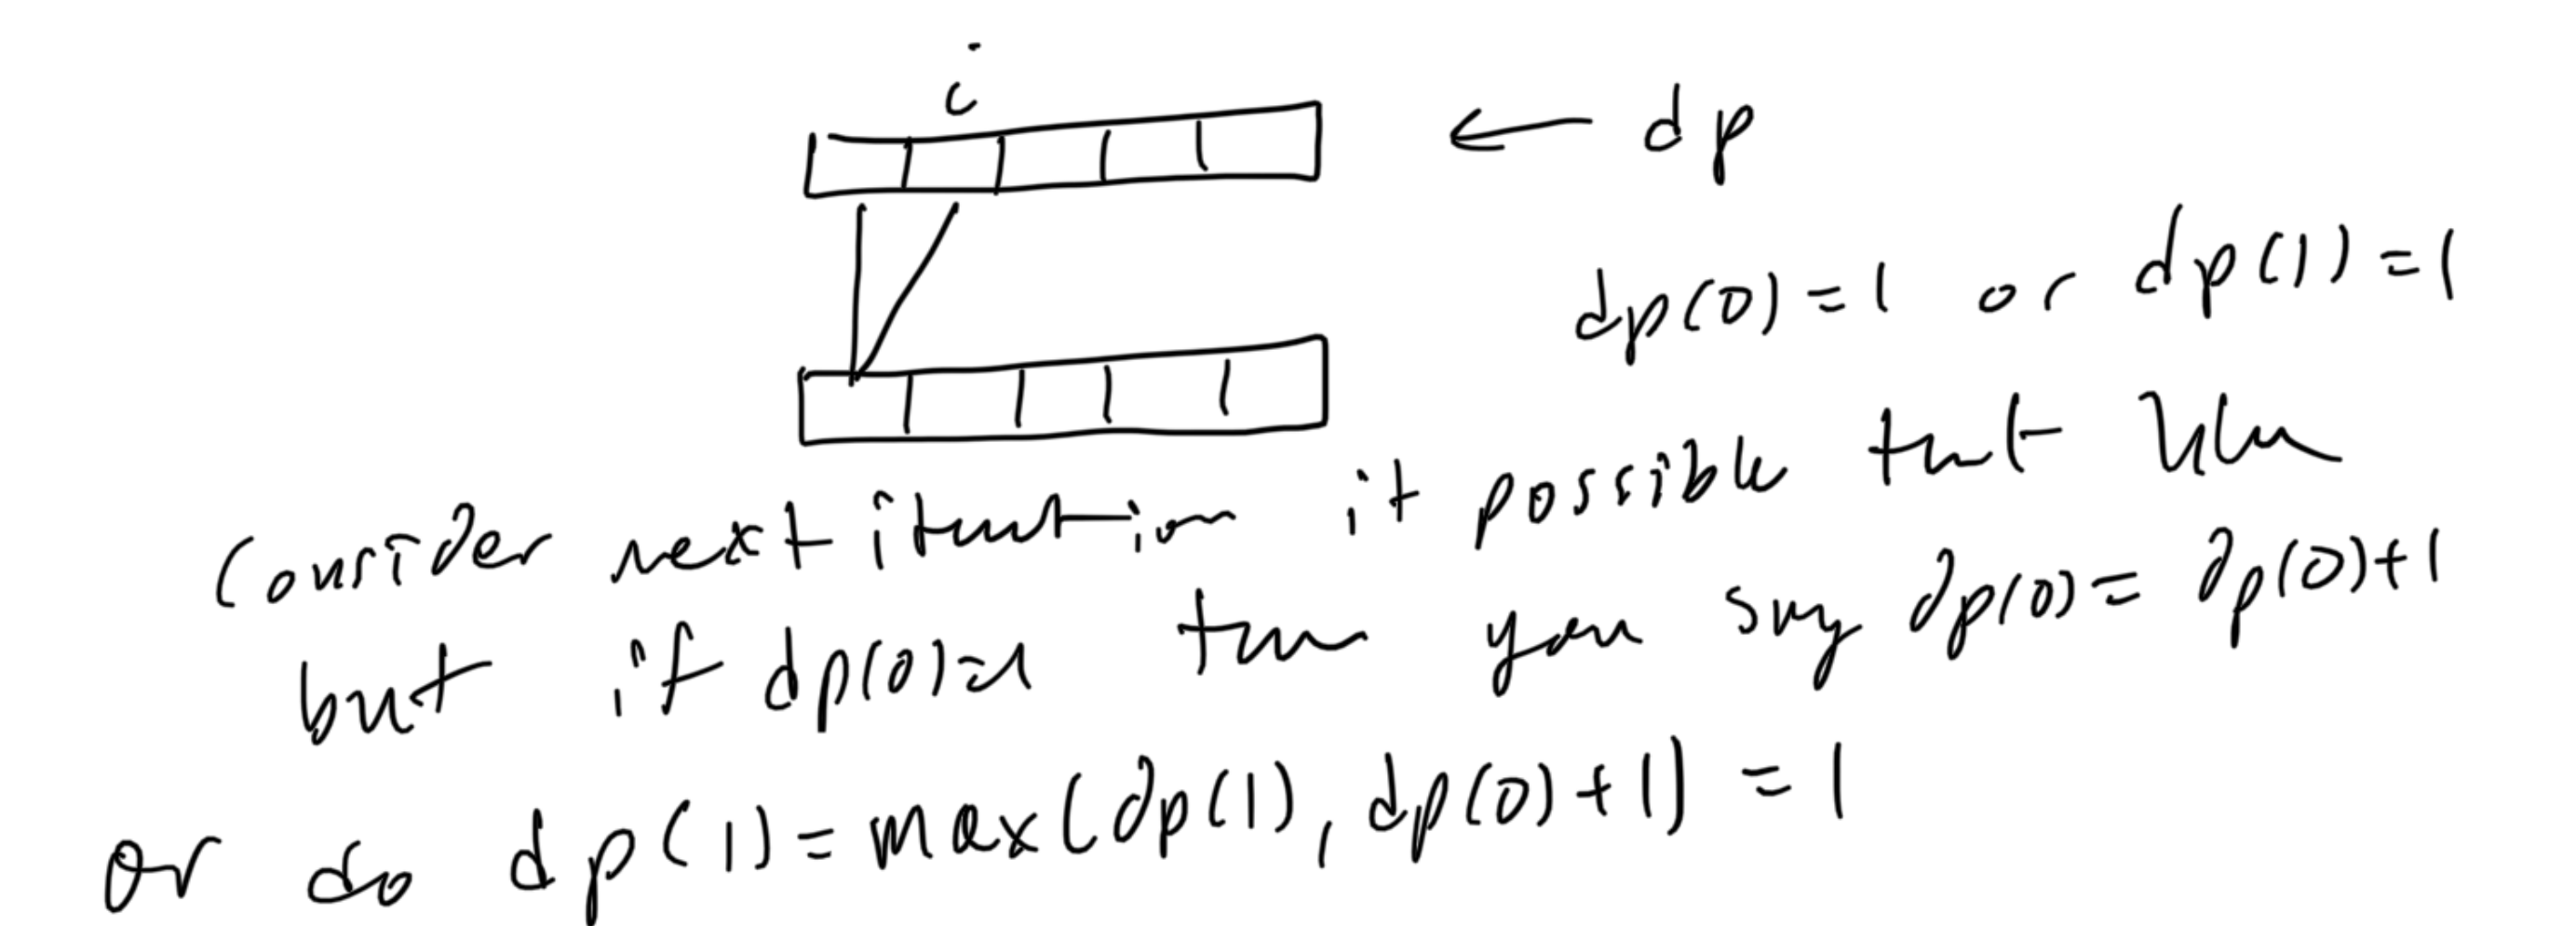 i
← dp
dp(0) = 1 or dp(1) = 1
Consider next iteration it possible that
but if dp(0)=1 then you say dp(0) = dp(0)+1
or do dp(1) = max(dp(1), dp(0)+1) = 1